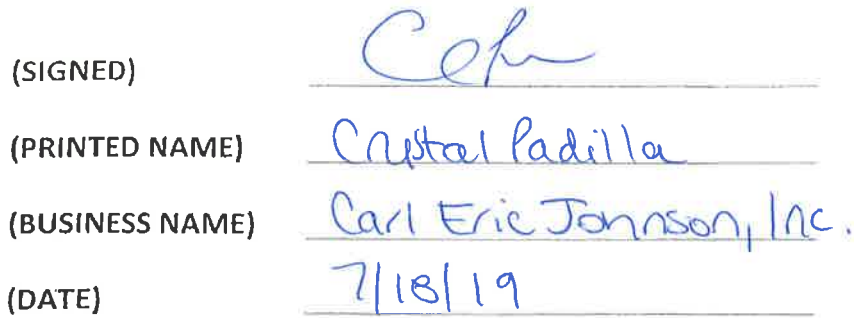 (SIGNED)
(PRINTED NAME) Crystal Padilla
(BUSINESS NAME) Carl Eric Johnson, Inc.
(DATE) 7/18/19